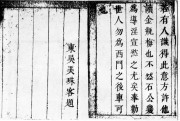 若有人識得此意方許他
讀金瓶梅也不然石公幾
為導淫宣慾之尤矣奉勸
世人勿為西門之後車可
也
東吳弄珠客題